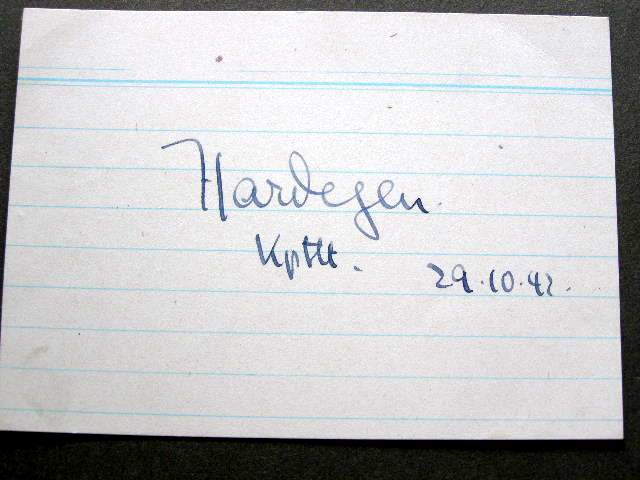 Hardegen.
Kptlt.
29.10.42.